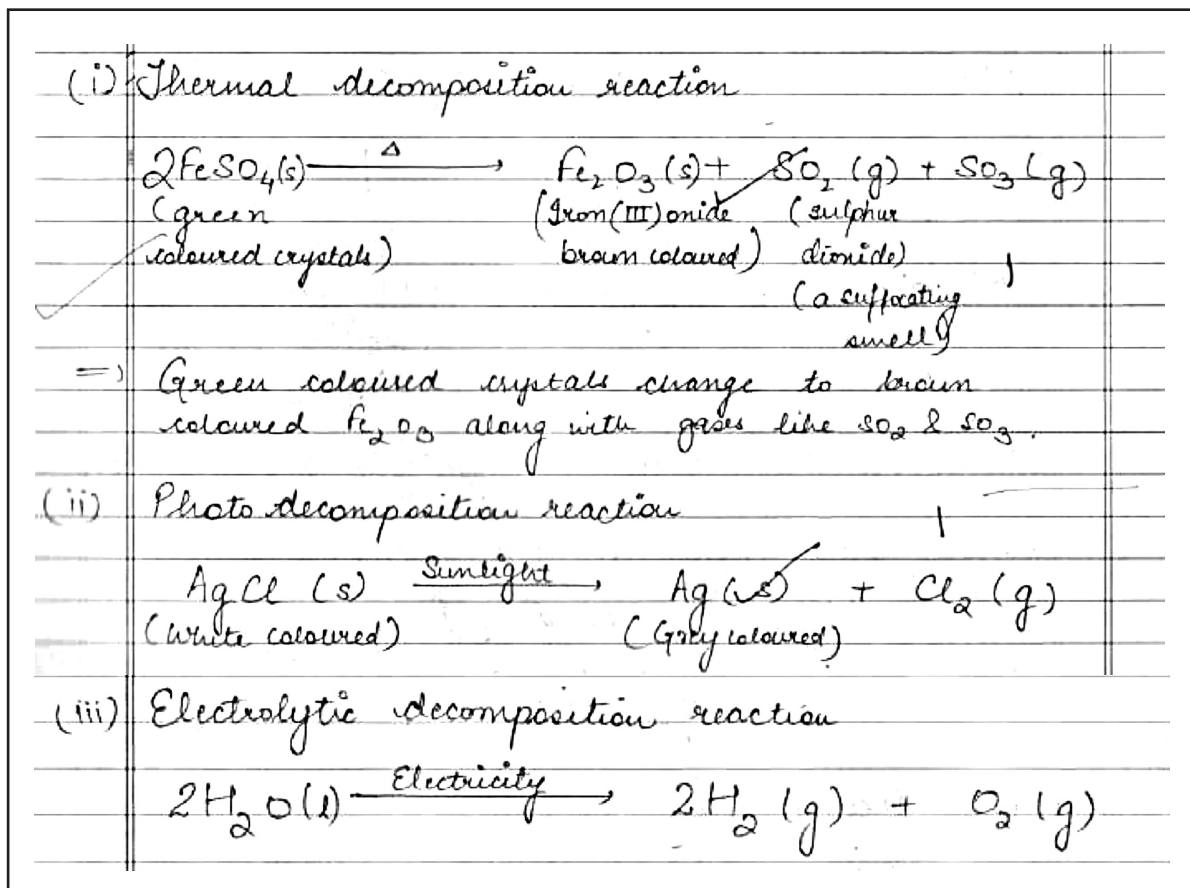 (i) Thermal decomposition reaction
2FeSO₄(s) —Δ→ Fe₂O₃(s) + SO₂(g) + SO₃(g)
(green (Iron(III) oxide (sulphur
coloured crystals) brown coloured) dioxide)
(a suffocating
smell)
=) Green coloured crystals change to brown
coloured Fe₂O₃ along with gases like SO₂ & SO₃.
(ii) Photo decomposition reaction
AgCl (s) —Sunlight→ Ag(s) + Cl₂(g)
(White coloured) (Grey coloured)
(iii) Electrolytic decomposition reaction
2H₂O(l) —Electricity→ 2H₂(g) + O₂(g)